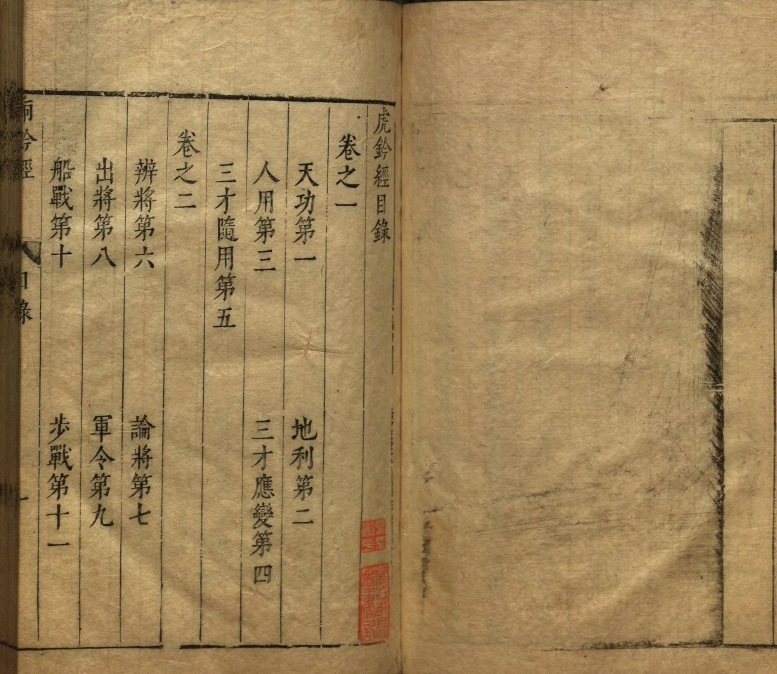 虎鈐經目錄
卷之一
天功第一 地利第二
人用第三 三才應變第四
三才隨用第五
卷之二
辨將第六 論將第七
出將第八 軍令第九
船戰第十 步戰第十一
鈐經 目錄 一